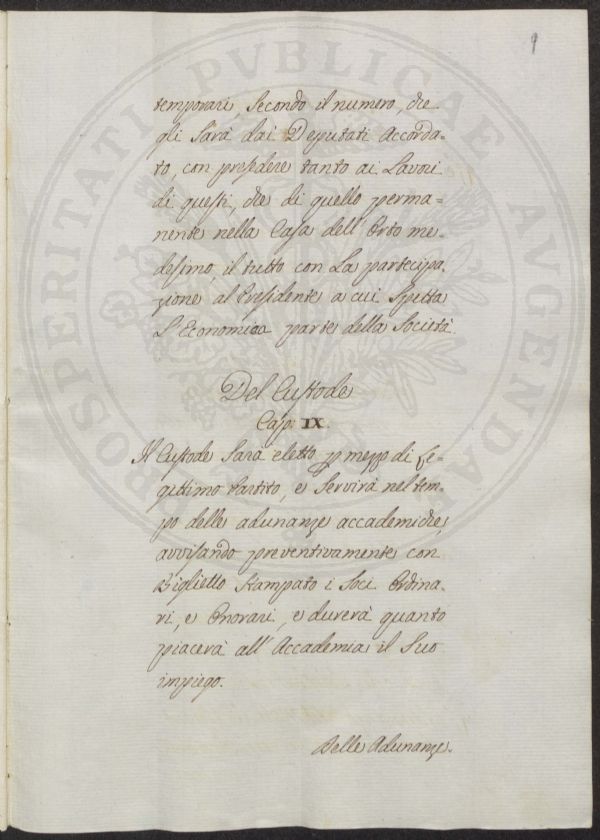 9
temporari, secondo il numero, che
gli sarà dai Deputati accorda-
to, con presedere tanto ai Lavori
di questi, che di quello perma=
nente nella Casa dell'Orto me-
desimo, il tutto con La partecipa-
zione al Presidente a cui spetta
L'Economica parte della Società.
Del Custode
Cap: IX.
Il Custode sarà eletto p mezzo di le-
gittimo Partito, e servirà nel tem-
po delle adunanze accademiche,
avvisando preventivamente con
Biglietto stampato i Soci Ordina-
ri, e Onorari, e durerà quanto
piacerà all'Accademia il suo
impiego.
Delle Adunanze.
PROSPERITATI PVBLICAE AVGENDAE